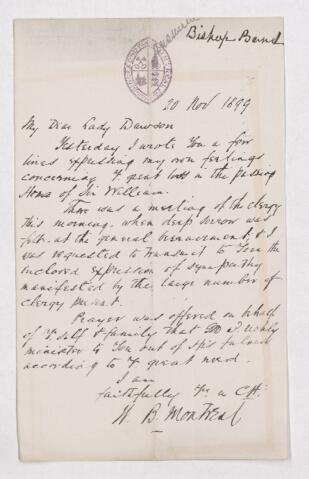 Bishop Bond
20 Nov 1899
My Dear Lady Dawson
Yesterday I wrote You a few
lines expressing my own feelings
concerning Yr great loss in the passing
of Sir William.
There was a meeting of the clergy
this morning, when deep sorrow was
felt at the general bereavement, & I
was requested to transmit to You the
inclosed expression of sympathy
manifested by the large number of
clergy present.
Prayer was offered on behalf
of Yr self & family that God wd richly
minister to You out of His fulness
according to Yr great need.
I am
faithfully Yrs in Ct.
W. B. Montreal